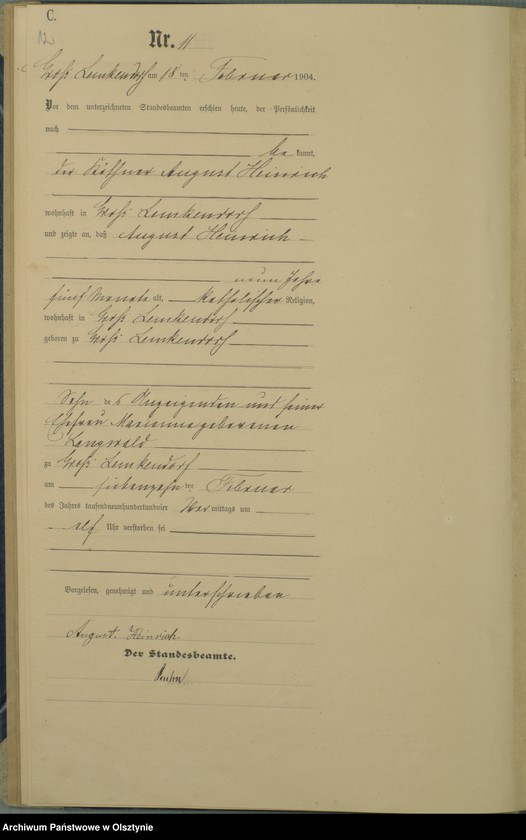 C.
12
Nr. 11
Groß Lemkendorf am 18 ten Februar 1904.
Vor dem unterzeichneten Standesbeamten erschien heute, der Persönlichkeit
nach
be kannt,
der Käthner August Heinrich
wohnhaft in Groß Lemkendorf
und zeigte an, daß August Heinrich
neun Jahre
fünf Monate alt, katholischer Religion,
wohnhaft in Groß Lemkendorf
geboren zu Groß Lemkendorf
Sohn des Anzeigenden und seiner
Ehefrau Marianna geborenen
Langwald
zu Groß Lemkendorf
am siebenzehn ten Februar
des Jahres tausendneunhundertundvier Vor mittags um
elf Uhr verstorben sei
Vorgelesen, genehmigt und unterschrieben
August Heinrich
Der Standesbeamte.
Archiwum Państwowe w Olsztynie